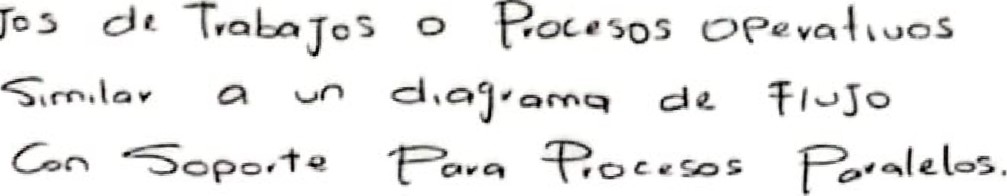 Jos de Trabajos o Procesos operativos
Similar a un diagrama de Flujo
Con Soporte Para Procesos Paralelos.